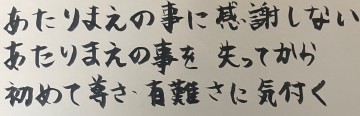 あたりまえの事に感謝しない
あたりまえの事を 失ってから
初めて尊さ 有難さに気付く